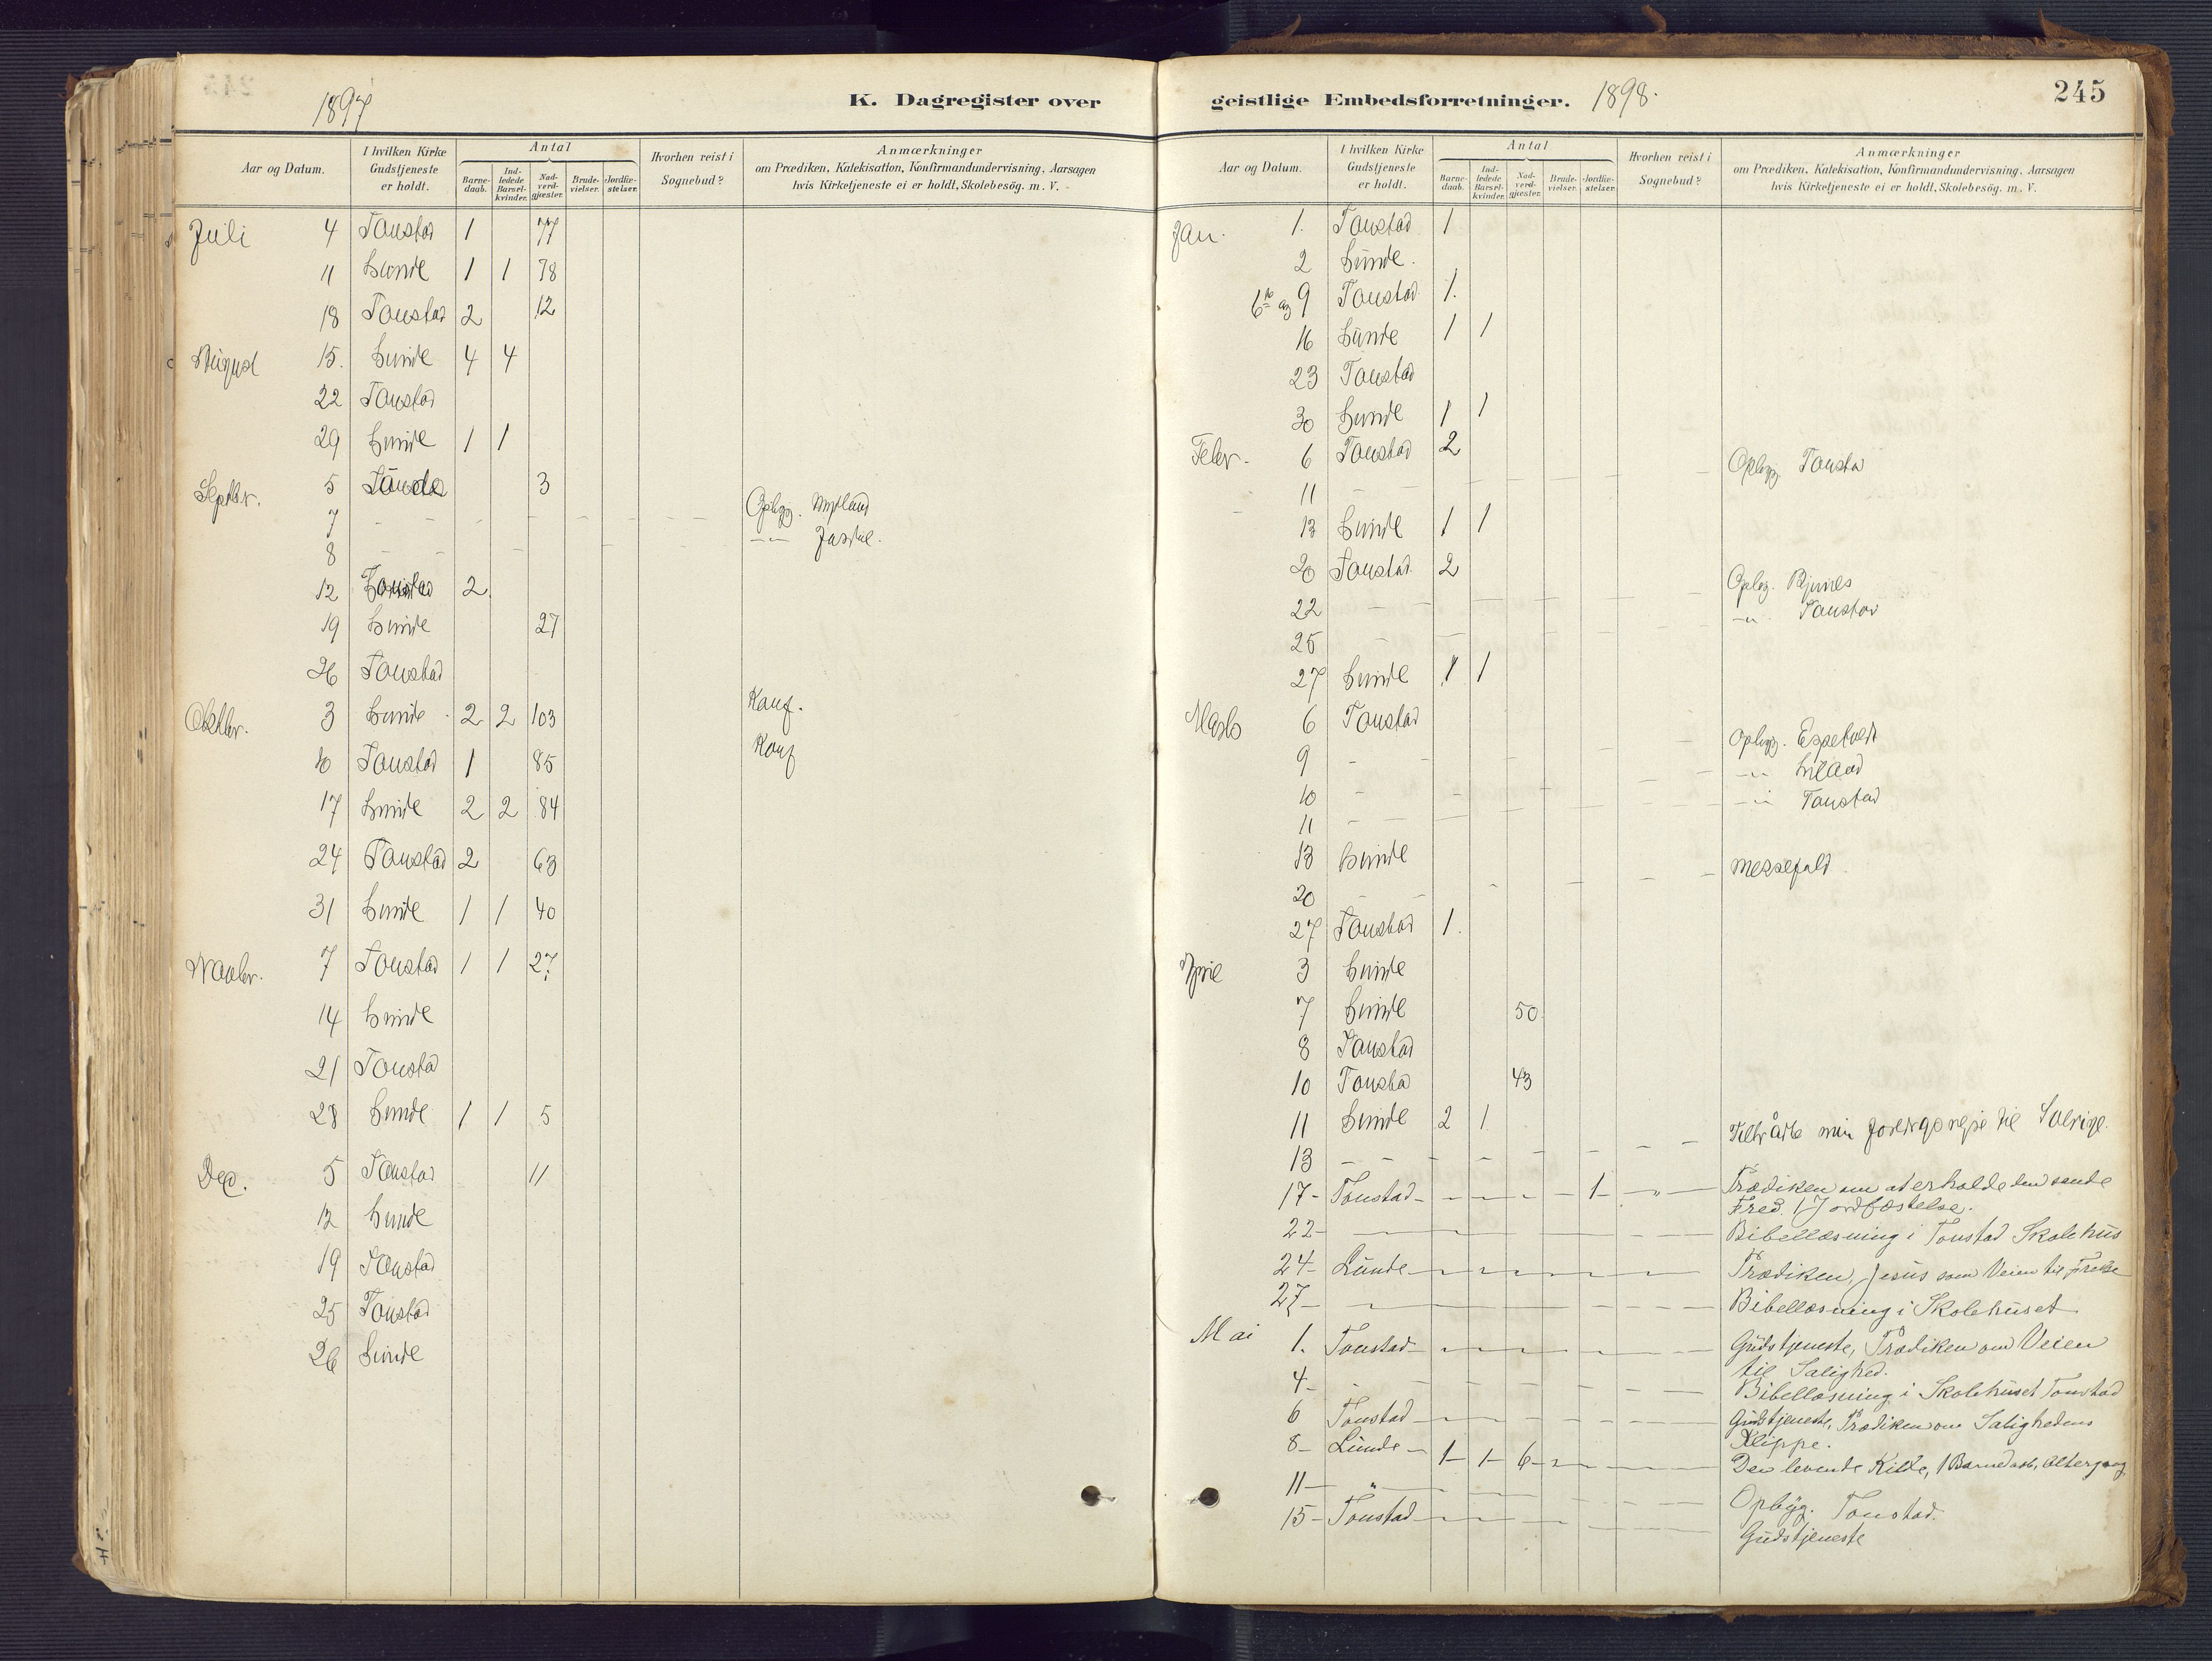 1897
K. Dagregister over
Aar og Datum.
I hvilken Kirke Gudstjeneste er holdt.
Antal
Barnedaab.
Indledede Barselkvinder.
Nadverdgjester.
Brudevielser.
Jordfæstelser.
Hvorhen reist i Sognebud?
Anmærkninger
om Prædiken, Katekisation, Konfirmandundervisning, Aarsagen
hvis Kirketjeneste ei er holdt, Skolebesög. m. V.
Juli 4 Tonstad 1 77
11 Lunde 1 1 78
18 Tonstad 2 12
August 15. Lunde 4 4
22 Tonstad
29 Lunde 1 1
Septbr. 5 3
7 - - Opbygg.
8 - - -"-
12 Tonstad 2
19 Lunde 27
26 Tonstad
Oktbr. 3 Lunde 2 2 103 Konf.
10 Tonstad 1 85 Konf
17 Lunde 2 2 84
24 Tonstad 2 63
31 Lunde 1 1 40
Novbr. 7 Tonstad 1 1 27
14 Lunde
21 Tonstad
28 Lunde 1 1 5
Dec. 5 Tonstad 11
12 Lunde
19 Tonstad
25 Tonstad
26 Lunde
geistlige Embedsforretninger. 1898.
245
Aar og Datum.
I hvilken Kirke Gudstjeneste er holdt.
Antal
Barnedaab.
Indledede Barselkvinder.
Nadverdgjester.
Brudevielser.
Jordfæstelser.
Hvorhen reist i Sognebud?
Anmærkninger
om Prædiken, Katekisation, Konfirmandundervisning, Aarsagen
hvis Kirketjeneste ei er holdt, Skolebesög. m. V.
Jan. 1. Tonstad 1
2 Lunde.
9 Tonstad 1.
16 Lunde 1 1
23 Tonstad
30 Lunde 1 1
Febr. 6 Tonstad 2
11 - - Opbygg. Tonstad
13 Lunde 1 1
20 Tonstad 2
22 - - Opbyg.
25 - - -"- Tonstad
27 Lunde 1 1
Marts 6 Tonstad
9 - - Opbygg.
10 - - -"-
11 - - -"- Tonstad
13 Lunde
20 - - Messefald.
27 Tonstad 1.
April 3 Lunde
7 Lunde 50
8 Tonstad
10 Tonstad 43
11 Lunde 2 1
13 - - Tiltrådte min til Sverige.
17 - Tonstad - - 1 - Prædiken om at erholde den sande
Fred. 1 Jordfæstelse.
22 - - Bibellæsning i Tonstad Skolehus
24 - Lunde - Prædiken, Jesus som Veien til Frelse
27 - - Bibellæsning i Skolehuset
Mai 1. Tonstad - Gudstjeneste, Prædiken om Veien
til Salighed.
4 - - Bibellæsning i Skolehuset Tonstad
6 Tonstad - Gudstjeneste, Prædiken om Salighedens
Klippe.
8 - Lunde - 1 - 1 - 6 - Den levende Kilde, 1 Barnedaab, Altergang
11 - " - Opbyg. Tonstad.
15 - Tonstad - Gudstjeneste